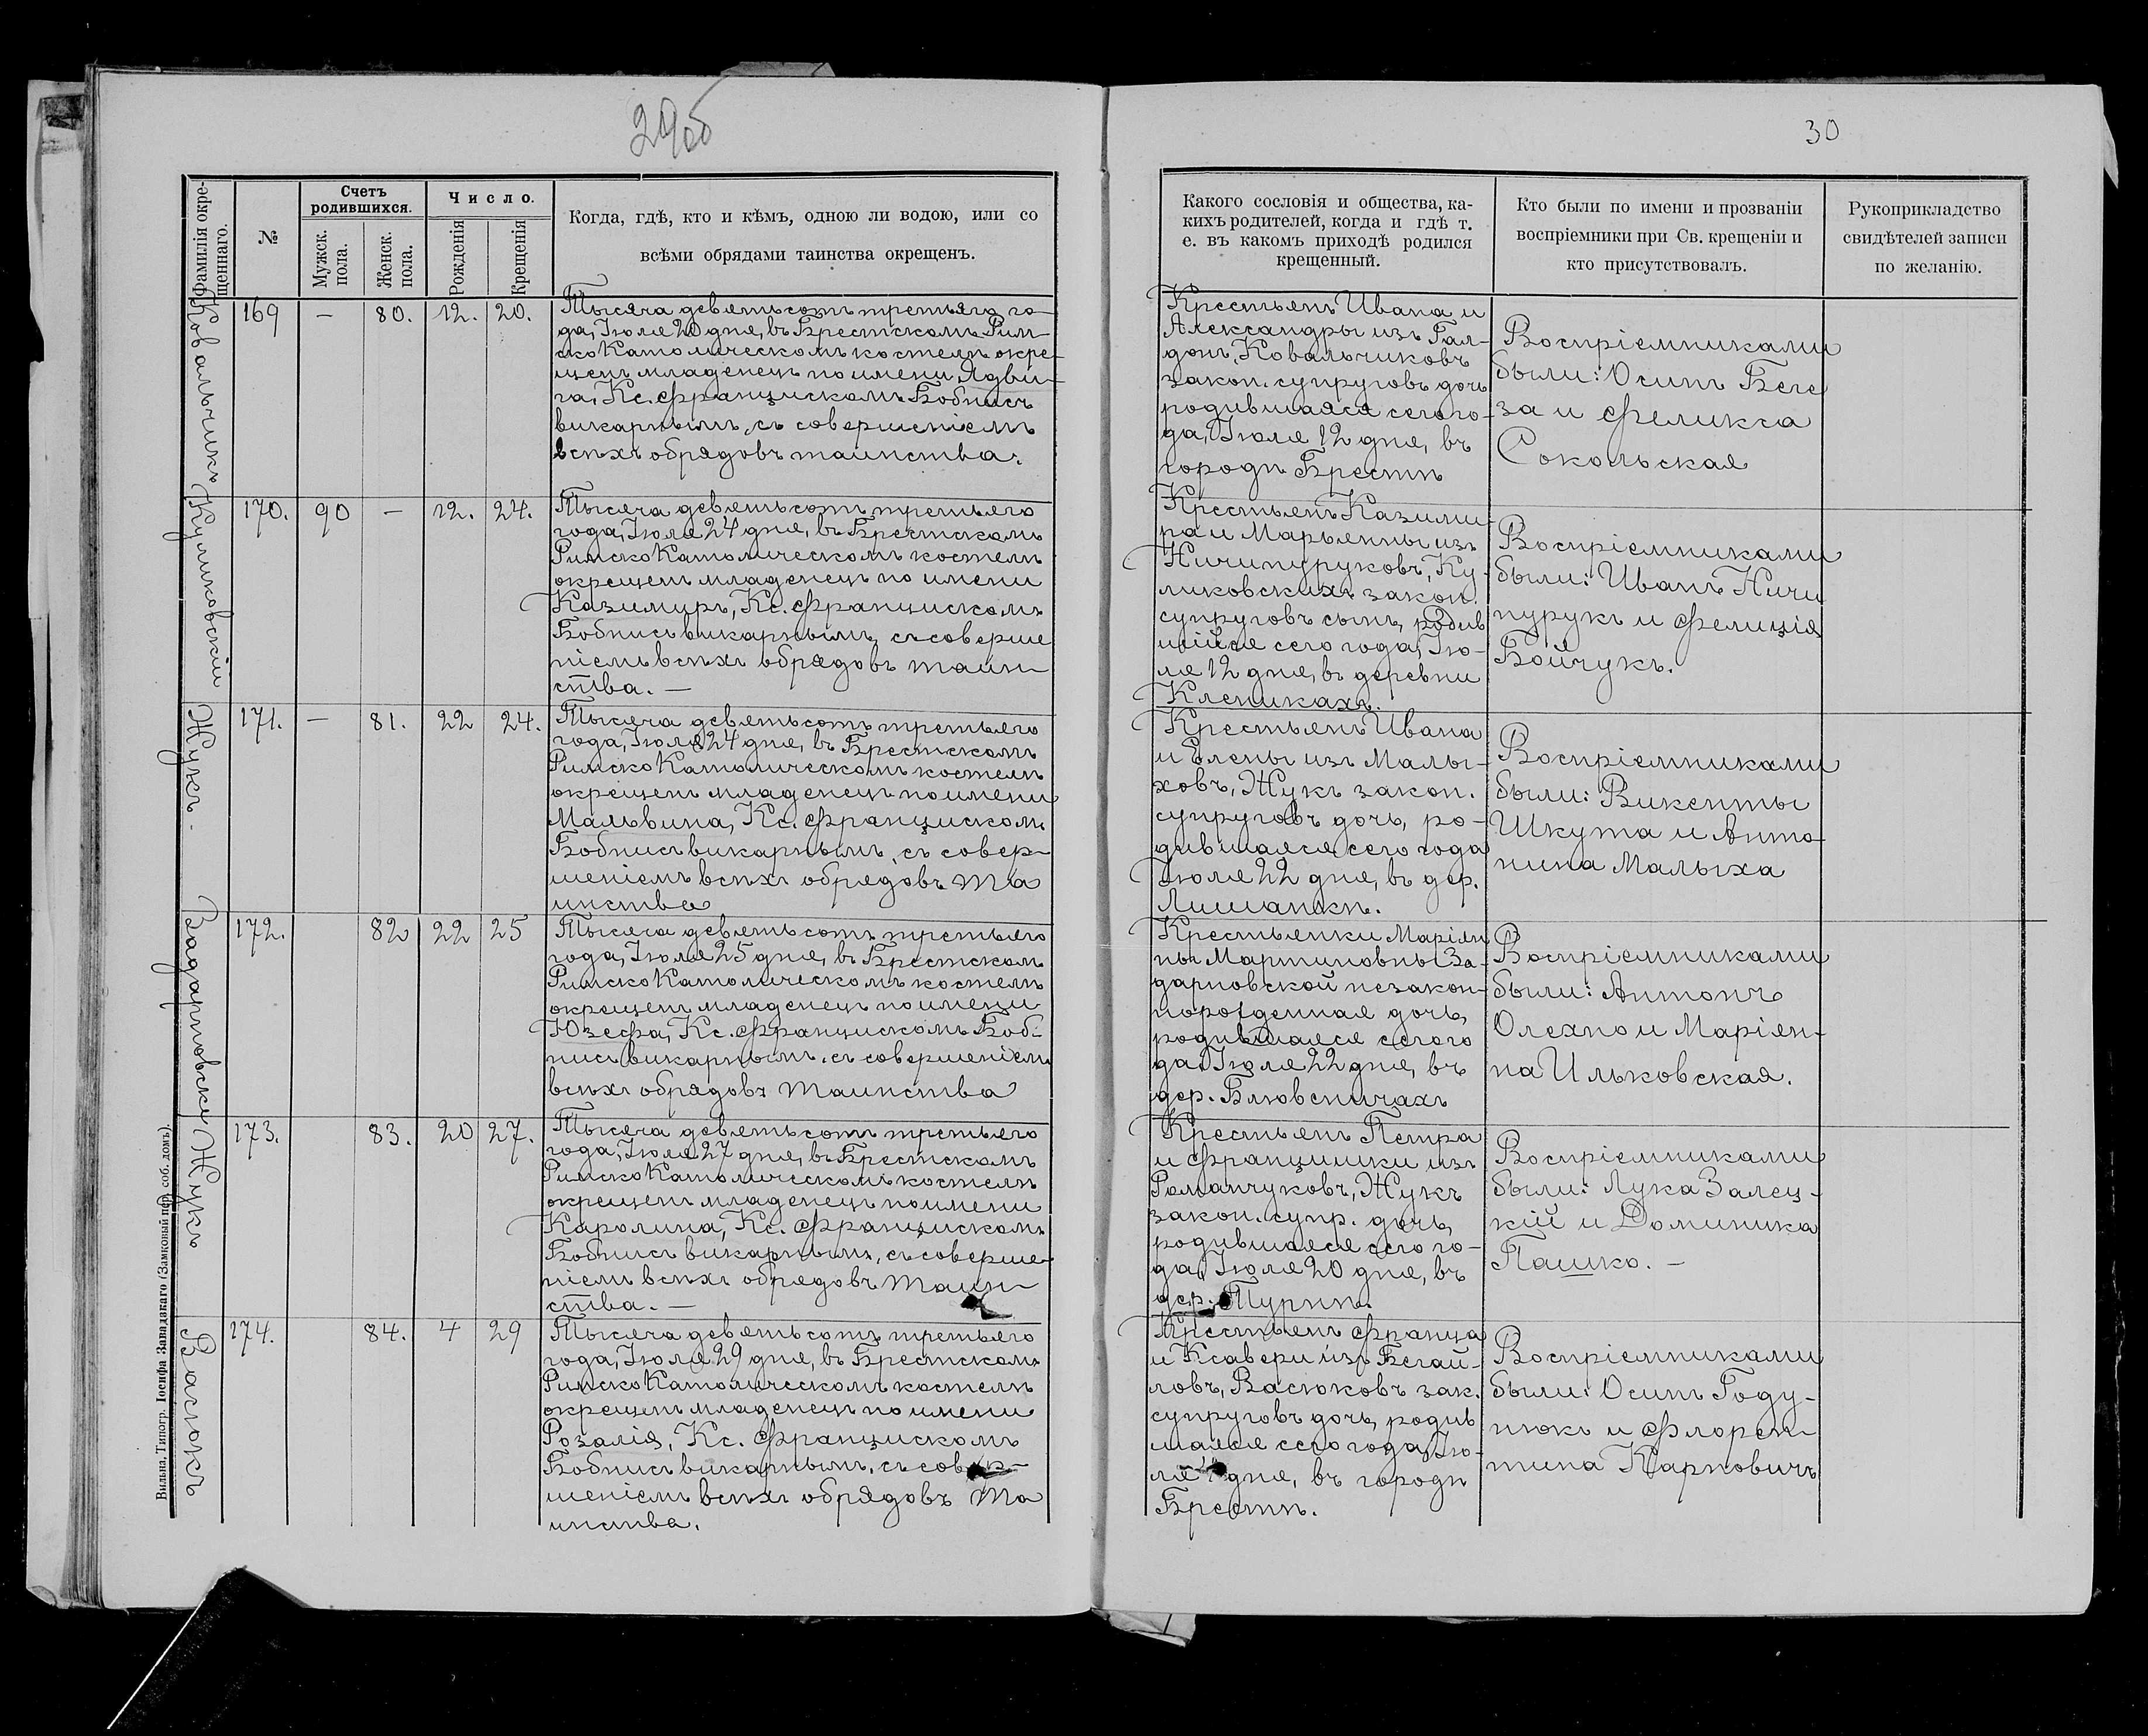 29об
30
Фамилія окре-
щеннаго.
№
Счетъ
родившихся.
Мужск.
пола.
Женск.
пола.
Число.
Рожденія
Крещенія
Когда, гдѣ, кто и кѣмъ, одною ли водою, или со
всѣми обрядами таинства окрещенъ.
Какого сословія и общества, ка-
кихъ родителей, когда и гдѣ т.
е. въ какомъ приходѣ родился
крещенный.
Кто были по имени и прозваніи
воспріемники при Св. крещеніи и
кто присутствовалъ.
Рукоприкладство
свидѣтелей записи
по желанію.
Ковальчикъ
169 — 80. 12. 20.
Тысяча девятьсотъ третьяго го-
да, Іюля 20 дня, въ Брестскомъ Рим-
ско Католическомъ костелѣ окре-
щенъ младенецъ по имени Ядви-
га, Кс. Францискомъ Бобнисъ
викарнымъ, съ совершеніемъ
всѣхъ обрядовъ таинства.
Крестьянъ Ивана и
Александры изъ Гал-
донъ, Ковальчиковъ
закон. супруговъ дочь
родившаяся сего го-
да, Іюля 12 дня, въ
городѣ Брестѣ
Воспріемниками
были: Осипъ Беге
за и Феликса
Сокольская
Куликовскій
170. 90 — 12. 24.
Тысяча девятьсотъ третьяго
года, Іюля 24 дня, въ Брестскомъ
Римско Католическомъ костелѣ
окрещенъ младенецъ по имени
Казимиръ, Кс. Францискомъ
Бобнисъ викарнымъ, съ соверше
ніемъ всѣхъ обрядовъ таин-
ства. —
Крестьянъ Казими-
ра и Марьянны изъ
Ничипуруковъ, Ку-
ликовскихъ закон.
супруговъ сынъ, родив
шійся сего года, Ію-
ля 12 дня, въ деревни
Клепикахъ.
Воспріемниками
были: Иванъ Ничи
пурукъ и Фелиція
Бойчукъ.
Жукъ
171. — 81. 22 24.
Тысяча девятьсотъ третьяго
года, Іюля 24 дня, въ Брестскомъ
Римско Католическомъ костелѣ
окрещенъ младенецъ по имени
Мальвина, Кс. Францискомъ
Бобнисъ викарнымъ, съ совер-
шеніемъ всѣхъ обрядовъ та
инства
Крестьянъ Ивана
и Елены изъ Малы-
ховъ, Жукъ закон.
супруговъ дочь, ро-
дившаяся сего года
Іюля 22 дня, въ дер.
Лишанкѣ.
Воспріемниками
были: Викенты
Шкута и Анто-
нина Малыха
Задарновска
172. 82 22 25
Тысяча девятьсотъ третьяго
года, Іюля 25 дня, въ Брестскомъ
Римско Католическомъ костелѣ
окрещенъ младенецъ по имени
Юзефа, Кс. Францискомъ Боб-
нисъ викарнымъ, съ совершеніемъ
всѣхъ обрядовъ таинства
Крестьянки Маріян
ны Мартиновны За-
дарновской незакон-
норожденная дочь,
родившаяся сего го
да, Іюля 22 дня, въ
дер. Блювсничахъ
Воспріемниками
были: Антонъ
Олехно и Маріян-
на Ильковская.
Жукъ
173. 83. 20 27.
Тысяча девятьсотъ третьяго
года, Іюля 27 дня, въ Брестскомъ
Римско Католическомъ костелѣ
окрещенъ младенецъ по имени
Каролина, Кс. Францискомъ
Бобнисъ викарнымъ, съ соверше-
ніемъ всѣхъ обрядовъ таин-
ства. —
Крестьянъ Петра
и Францишки изъ
Романчуковъ, Жукъ
закон. супр. дочь,
родившаяся сего го-
да, Іюля 20 дня, въ
дер. Турнѣ.
Воспріемниками
были: Лука Залец-
кій и Доминика
Пашко. —
Васюкъ
174. 84. 4 29
Тысяча девятьсотъ третьяго
года, Іюля 29 дня, въ Брестскомъ
Римско Католическомъ костелѣ
окрещенъ младенецъ по имени
Розалія, Кс. Францискомъ
Бобнисъ викарнымъ, съ совер-
шеніемъ всѣхъ обрядовъ та
инства.
Крестьянъ Франца
и Ксавери изъ Бегай-
ловъ, Васюковъ зак.
супруговъ дочь, родив
шаяся сего года, Ію-
ля 4 дня, въ городѣ
Брестѣ.
Воспріемниками
были: Осипъ Году-
нюкъ и Флорен-
тина Карповичъ
Вильна, Типогр. Іосифа Завадзкаго (Замковый пер. соб. домъ).